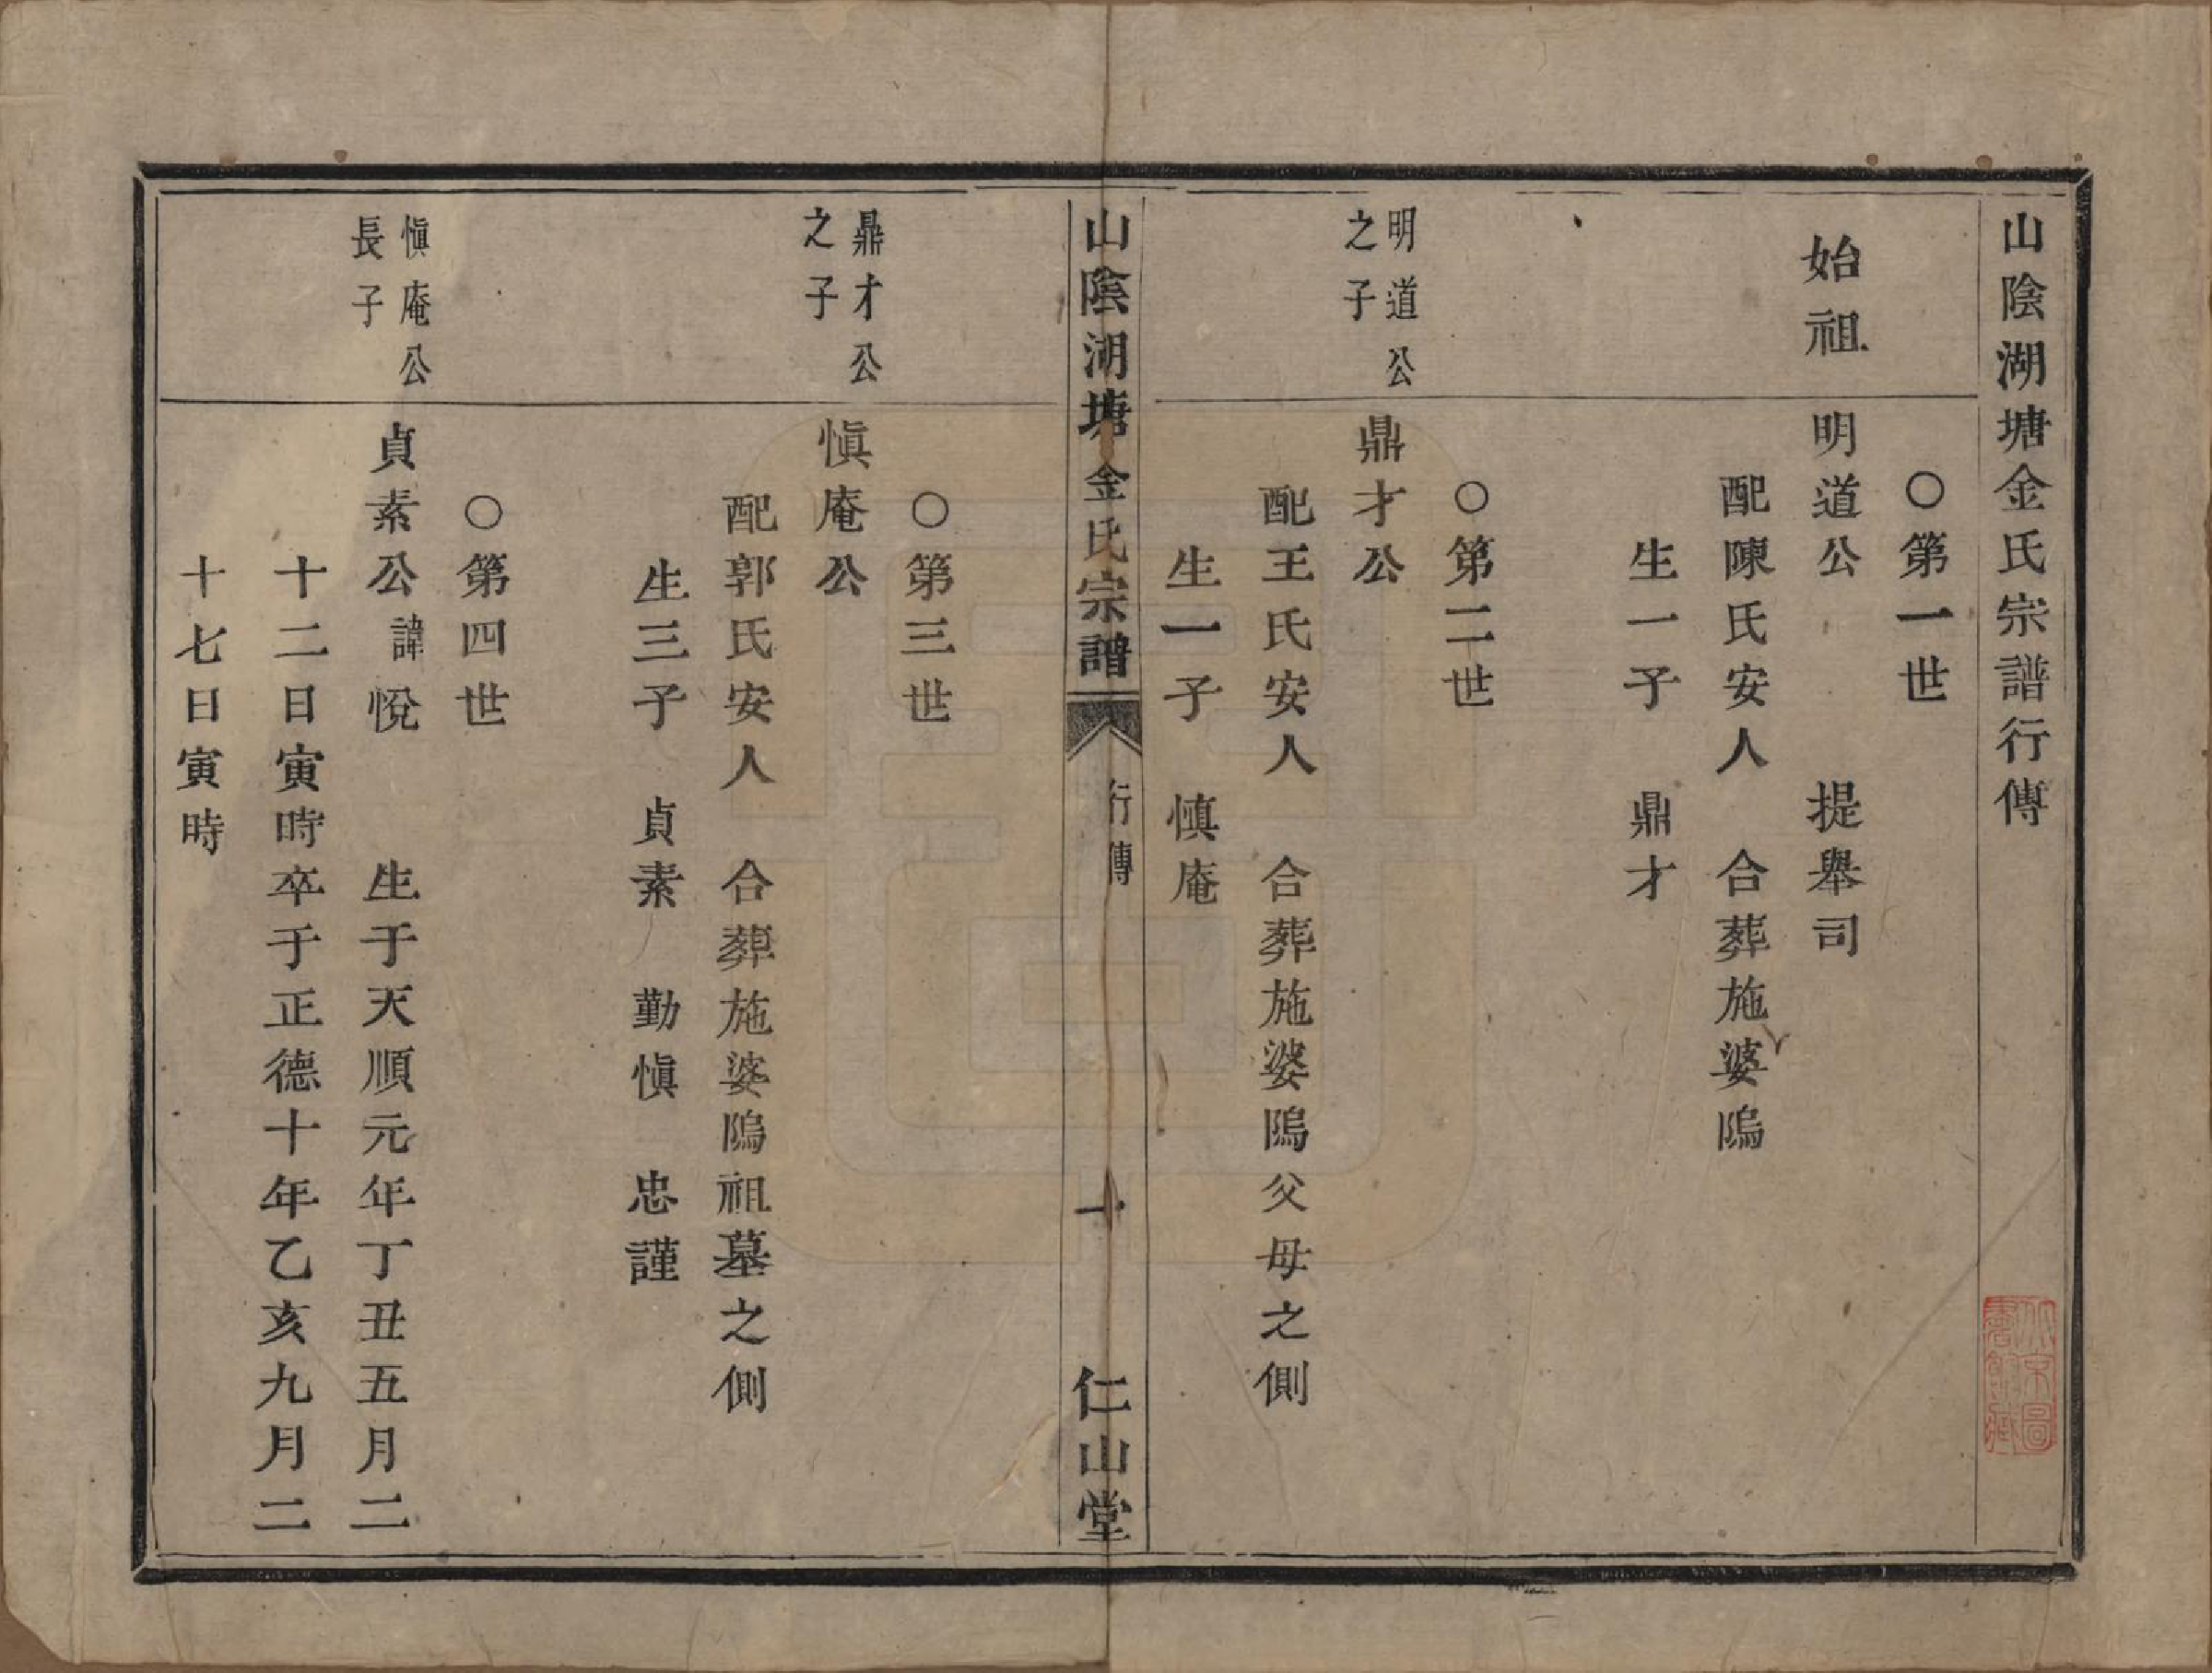 山陰湖塘金氏宗譜行傳
○第一世
始祖
明道公　提舉司
配陳氏安人　合葬施婆隖
生一子　鼎才
○第二世
明道公
之子
鼎才公
配王氏安人　合葬施婆隖父母之側
生一子　慎庵
山陰湖塘金氏宗譜　行傳　一　仁山堂
○第三世
鼎才公
之子
愼庵公
配郭氏安人　合葬施婆隖祖墓之側
生三子　貞素　勤愼　忠謹
○第四世
愼庵公
長子
貞素公諱悅　生于天順元年丁丑五月二
十二日寅時卒于正德十年乙亥九月二
十七日寅時
北京圖
書館藏